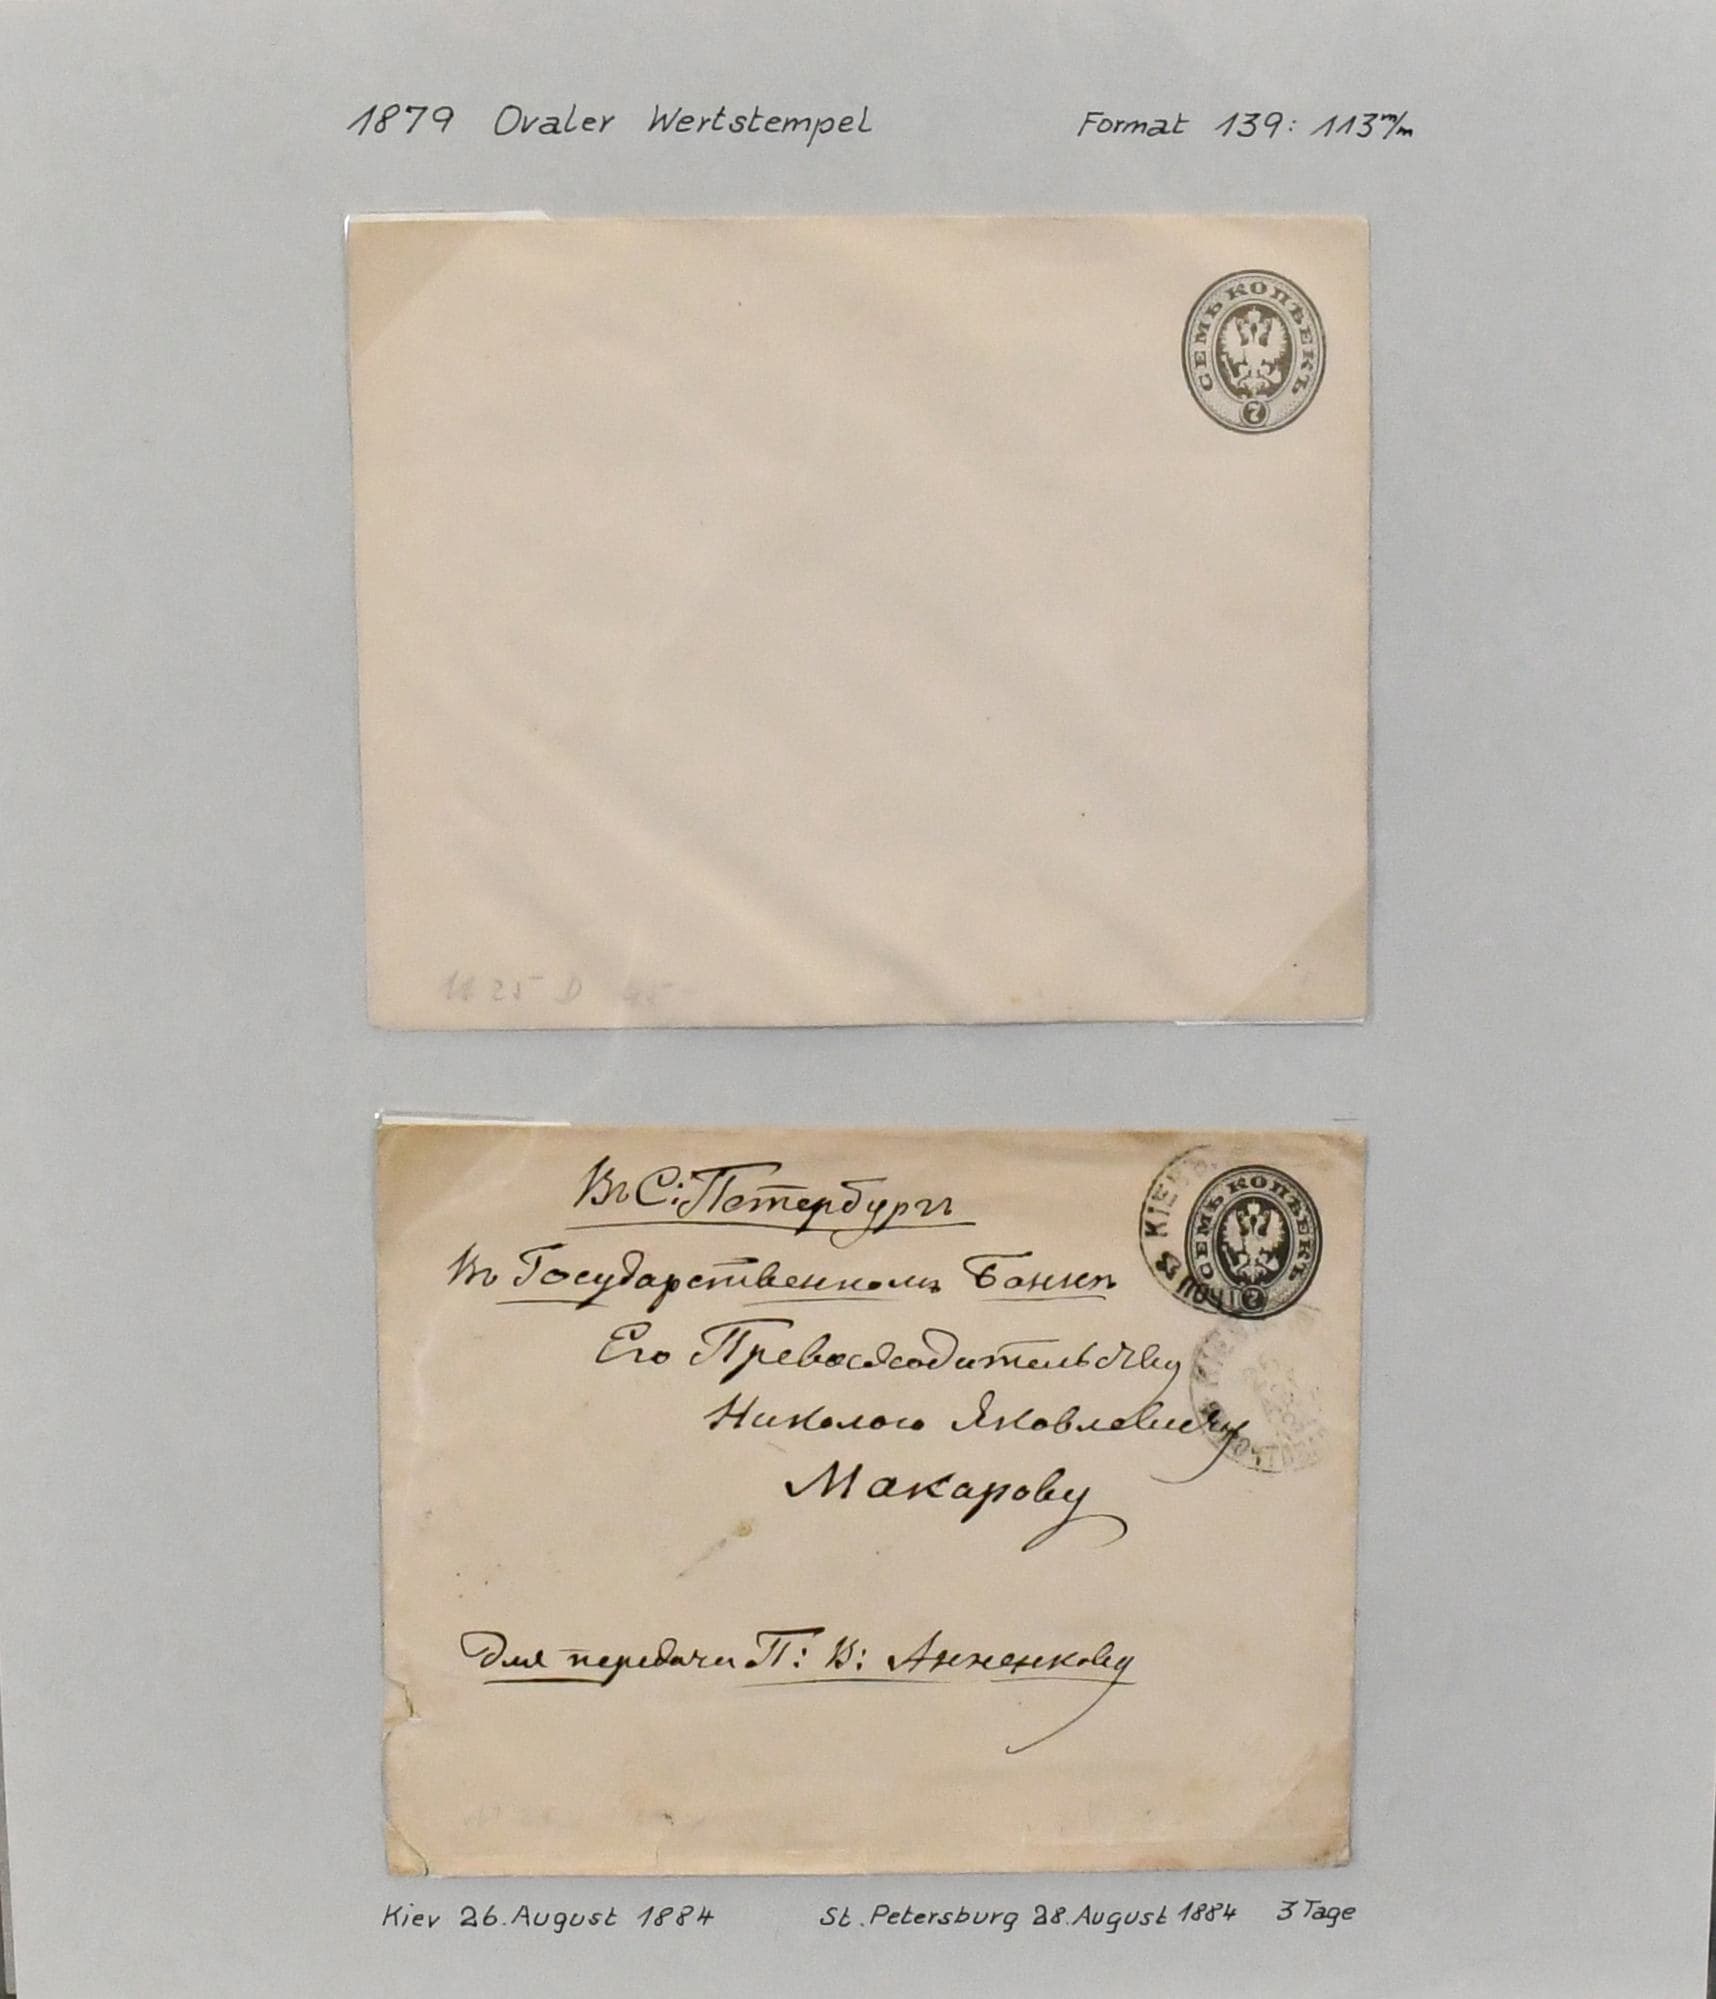 1879 Ovaler Wertstempel Format 139: 113 m/m
СЕМЬ КОПѢЕКЪ
7
11 25 D 45-
Въ С: Петербургъ
Въ Государственномъ Банкѣ
Его Превосходительству
Николаю Яковлевичу
Макарову
Для передачи П: В: Анненкову
КІЕВЪ
СЕМЬ КОПѢЕКЪ
7
КІЕВ
Kiev 26. August 1884 St. Petersburg 28. August 1884 3 Tage